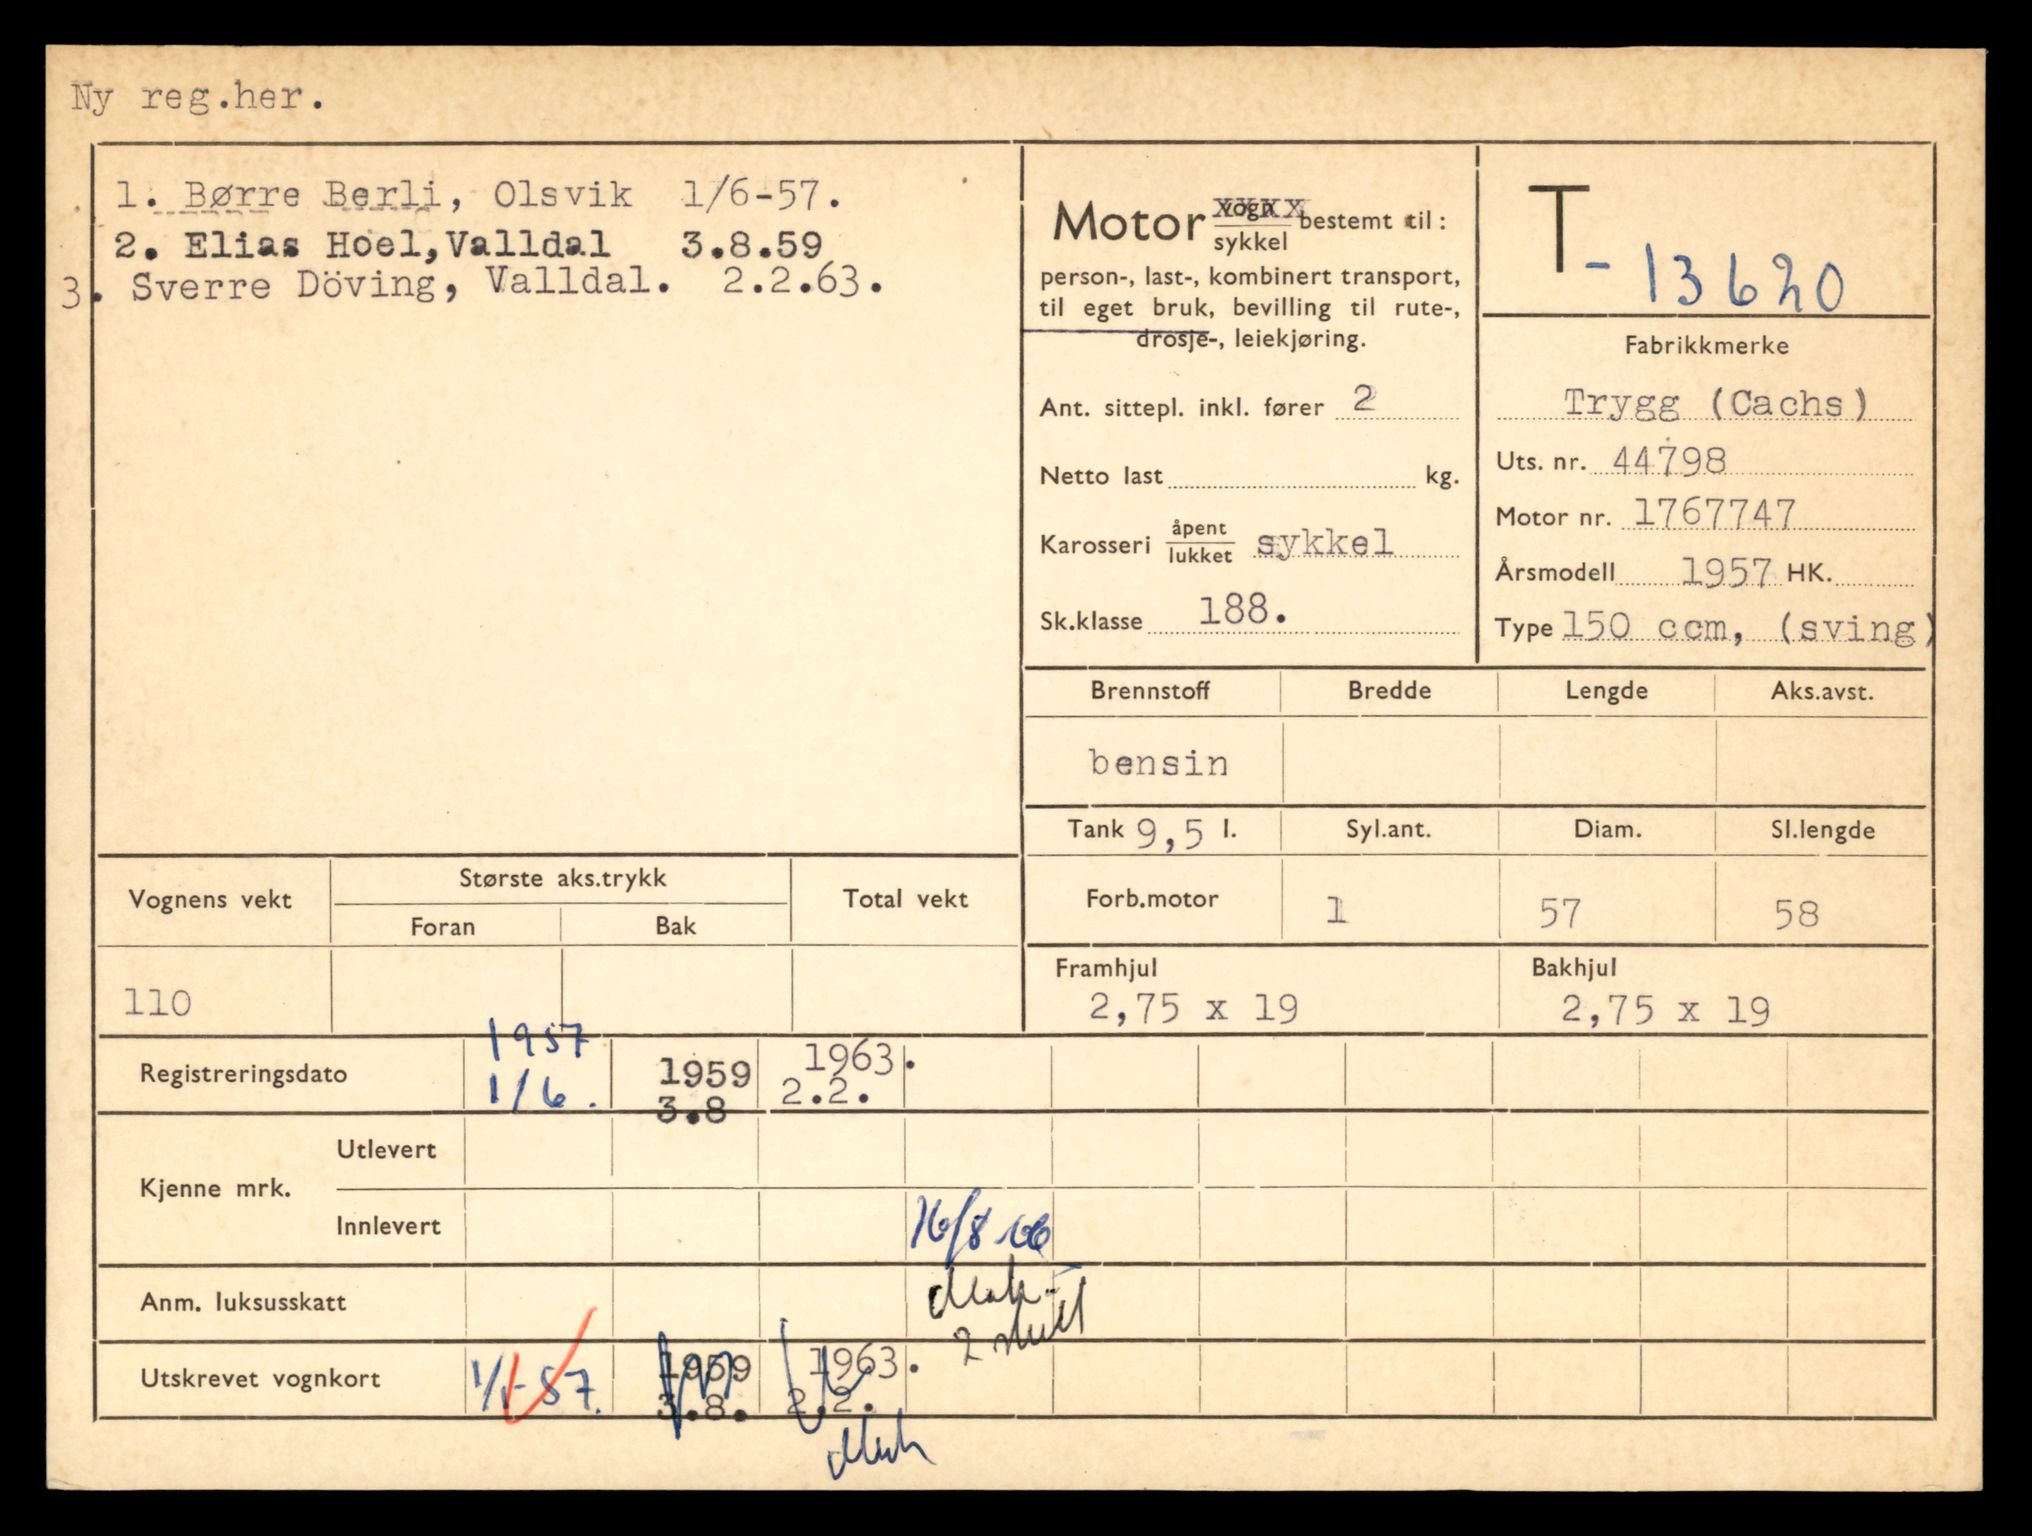 Ny reg.her.
1. Børre Berli, Olsvik 1/6-57.
2. Elias Hoel, Valldal 3.8.59
3. Sverre Döving, Valldal. 2.2.63.
Motor vogn/sykkel bestemt til:
person-, last-, kombinert transport,
til eget bruk, bevilling til rute-,
drosje-, leiekjøring.
Ant. sittepl. inkl. fører 2
Netto last kg.
Karosseri åpent/lukket sykkel
Sk.klasse 188.
T-13620
Fabrikkmerke
Trygg (Cachs)
Uts. nr. 44798
Motor nr. 1767747
Årsmodell 1957 HK.
Type 150 ccm, (sving)
Brennstoff Bredde Lengde Aks.avst.
bensin
Tank 9,5 l. Syl.ant. Diam. Sl.lengde
Forb.motor 1 57 58
Framhjul Bakhjul
2,75 x 19 2,75 x 19
Vognens vekt Største aks.trykk Total vekt
Foran Bak
110
Registreringsdato 1957 1/6. 1959 3.8 1963. 2.2.
Kjenne mrk. Utlevert
Innlevert 16/8 66
Anm. luksusskatt
2 skilt
Utskrevet vognkort 1/1-57. 1959 3.8. 1963. 2.2.